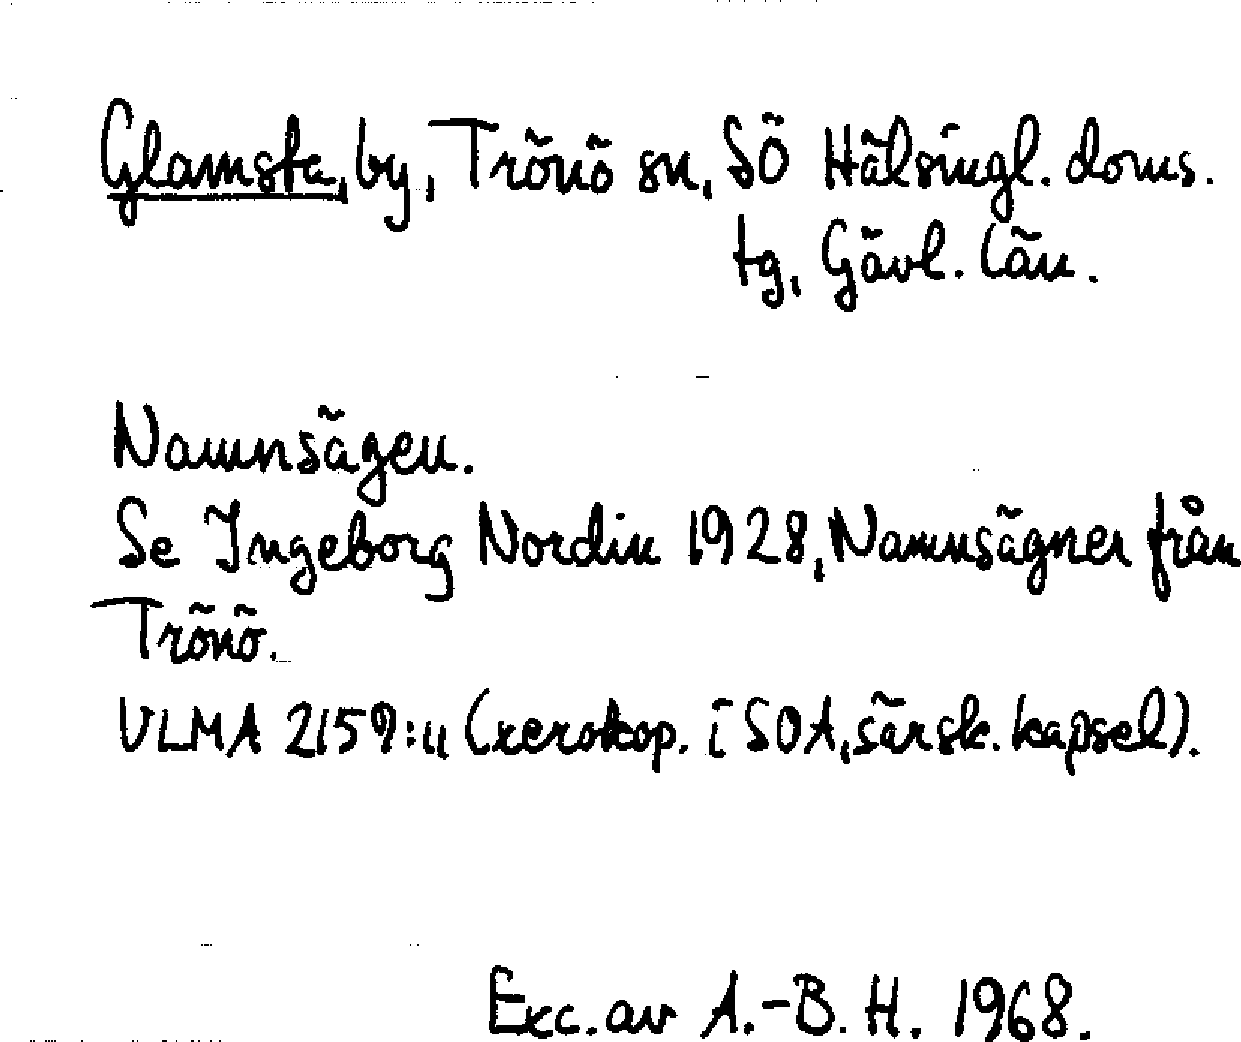 Glamsta, by, Trönö sn, SÖ Hälsingl. doms.
tg, Gävl. län.
Namnsägen.
Se Ingeborg Nordin 1928, Namnsägner från
Trönö.
ULMA 2159:4 (xerokop. i SOA, särsk. kapsel).
Exc. av A.-B. H. 1968.